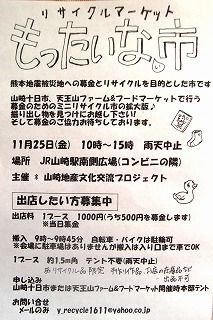 リサイクルマーケット
もったいな市
熊本地震被災地への募金とリサイクルを目的とした市です
山崎十日市、天王山ファーム&フードマーケットで行う
募金のためのミニリサイクル市の拡大版♪
掘り出し物を見つけにお越し下さい!
そして募金のご協力お待ちしております。
11月25日(金) 10時~15時 雨天中止
場所 JR山崎駅南側広場(コンビニの隣)
主催 * 山崎地産文化交流プロジェクト
出店したい方募集中
出店料 1ブース 1000円(うち500円を募金します)
※当日集金
搬入 9時~9時45分 自転車・バイクは駐輪可
※会場に駐車場はありませんが搬入は入り口まで車でOK
1ブース 約1.5m角 テント不要(雨天中止)
※リサイクル品限定 手作り作品、お店の在庫品など
出品不可
申し込み
山崎十日市または天王山ファーム&フードマーケット開催時本部テント
お問い合せ
メールのみ y_recycle1611@yahoo.co.jp